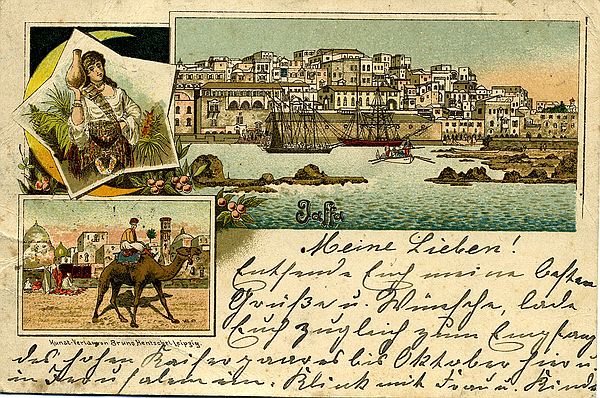 Jaffa
Meine Lieben!
Entsende Euch meine besten
Grüße u. Wünsche, lade
Euch zugleich zum Empfang
Kunst-Verlag von Bruno Hentschel, Leipzig.
des hohen Kaiserpaares bis Oktober hier u.
in Jerusalem ein. Klink mit Frau u. Kinder